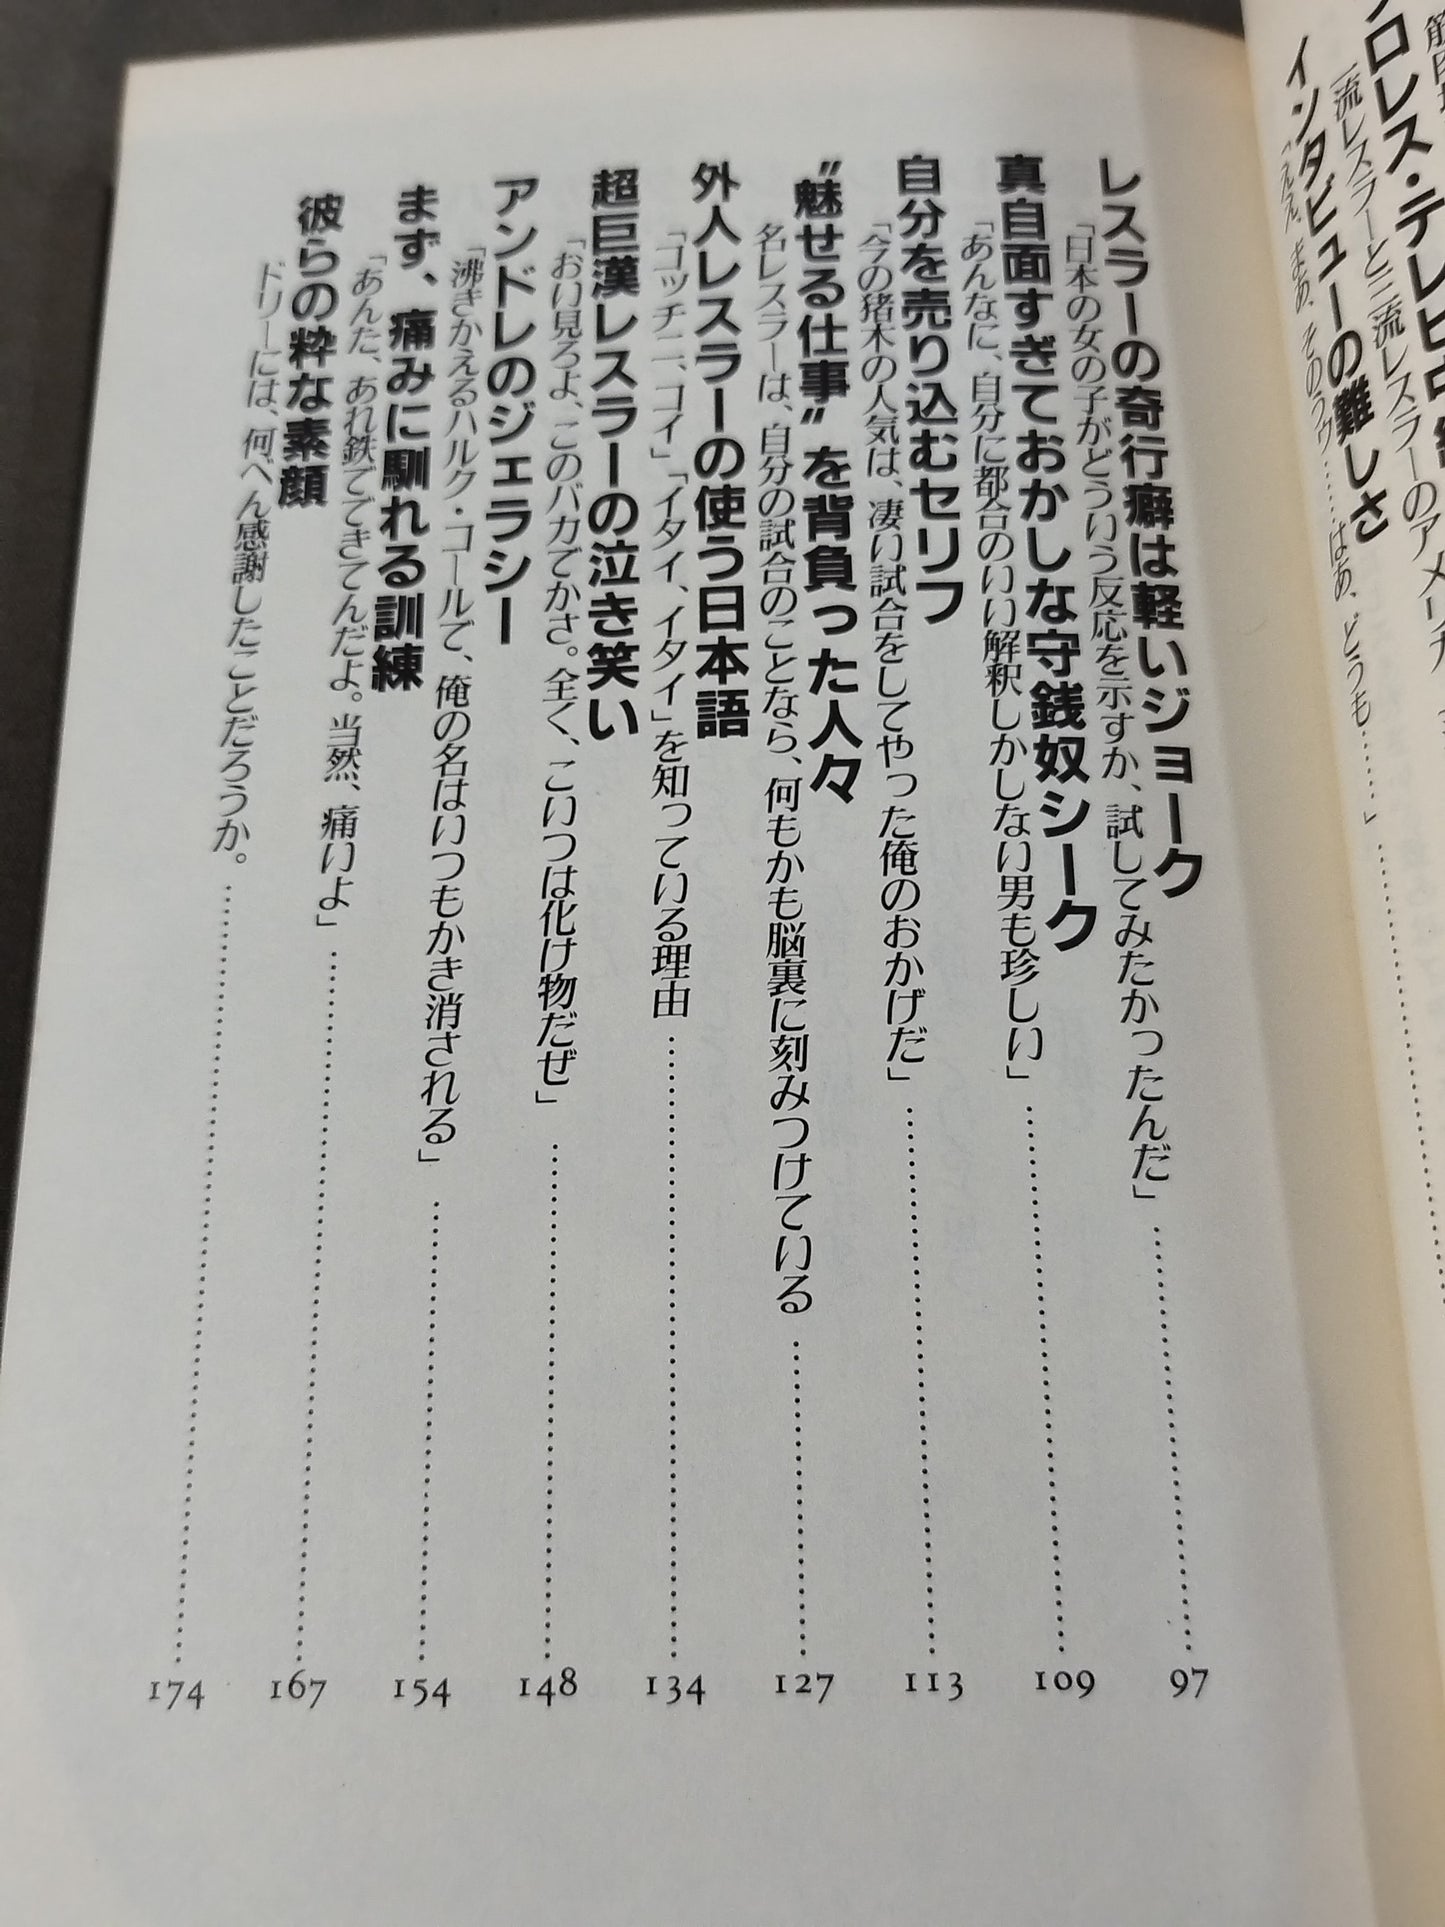 インタビューの難しさ
「ええ、まあ、そのうウ……はあ、どうも……」
レスラーの奇行癖は軽いジョーク
「日本の女の子がどういう反応を示すか、試してみたかったんだ」……97
真自面すぎておかしな守銭奴シーク
「あんなに、自分に都合のいい解釈しかしない男も珍しい」……109
自分を売り込むセリフ
「今の猪木の人気は、凄い試合をしてやった俺のおかげだ」……113
〝魅せる仕事〟を背負った人々
名レスラーは、自分の試合のことなら、何もかも脳裏に刻みつけている……127
外人レスラーの使う日本語
「コッチニ、コイ」「イタイ、イタイ」を知っている理由……134
超巨漢レスラーの泣き笑い
「おい見ろよ、このバカでかさ。全く、こいつは化け物だぜ」……148
アンドレのジェラシー
「沸きかえるハルク・コールで、俺の名はいつもかき消される」……154
まず、痛みに馴れる訓練
「あんた、あれ鉄でできてんだよ。当然、痛いよ」……167
彼らの粋な素顔
ドリーには、何べん感謝したことだろうか。……174